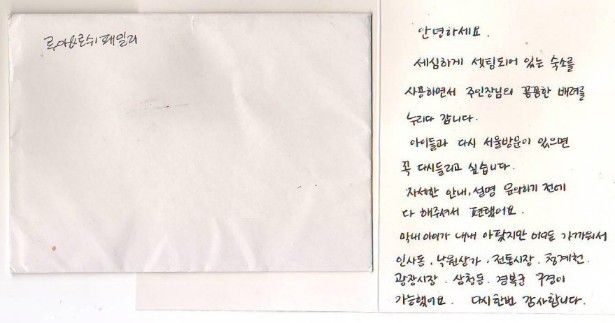 루아&로쉬 패밀리
안녕하세요.
세심하게 셋팅되어 있는 숙소를
사용하면서 주인장님의 꼼꼼한 배려를
누리다 갑니다.
아이들과 다시 서울방문이 있으면
꼭 다시들리고 싶습니다.
자세한 안내, 설명 문의하기 전에
다 해주셔서 편했어요.
막내아이가 내내 아팠지만 이곳을 가까워서
인사동, 낙원상가, 전통시장, 청계천,
광장시장, 삼청동, 경복궁 구경이
가능했어요. 다시한번 감사합니다.